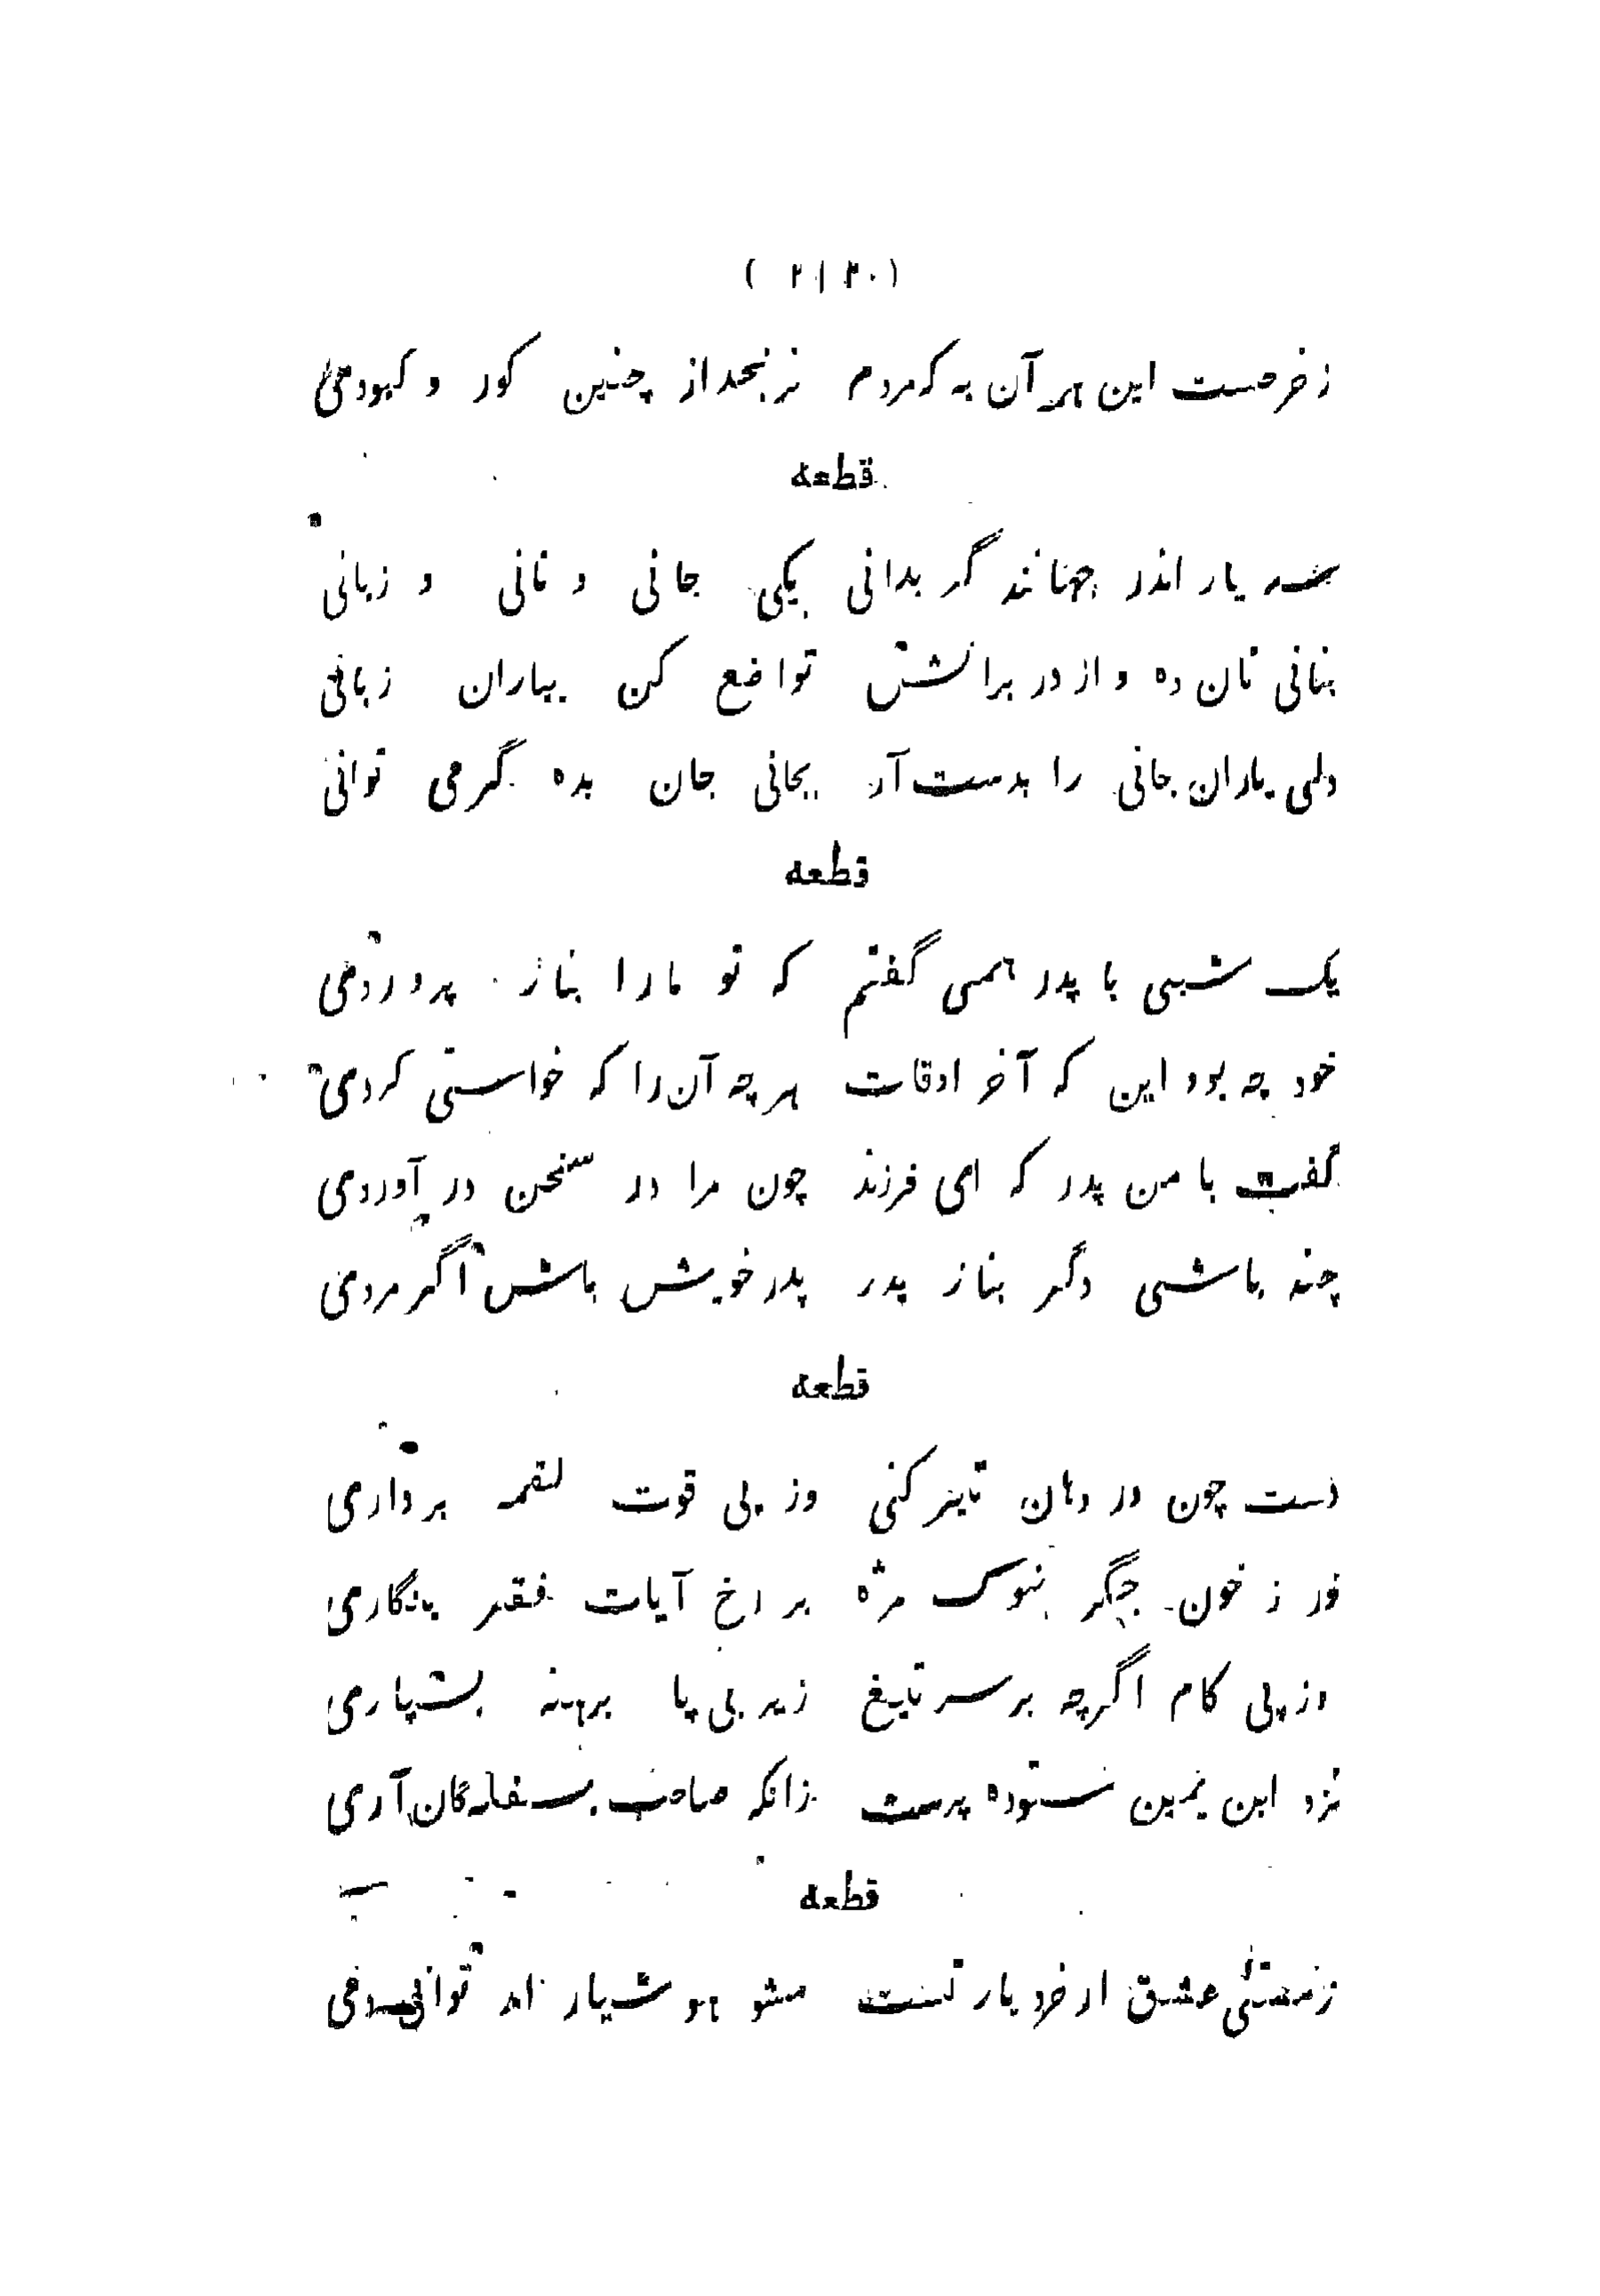 (۲۱۲۰)
ز خرمست این هر آن به که مردم نرنجد از چنین کور و کبودی
قطعه
سه یار اندر جهانند گر بدانی یکی جانی و نانی و زبانی
بنانی نان ده و از در برانش تواضع کن بیاران زبانی
ولی یاران جانی را بدست آر بجانی جان بده گر می توانی
قطعه
یک شبی با پدر همی گفتم که تو ما را بناز پروردی
خود چه بود این که آخر اوقات هر چه آن را که خواستی کردی
گفت با من پدر که ای فرزند چون مرا در سخن در آوردی
چند باشی دگر بناز پدر پدر خویش باش اگر مردی
قطعه
دست چون در دهان تیز کنی وز پی قوت لقمه برداری
ور ز خون جگر بنوک مژه بر رخ آیات فقر بنگاری
وز پی کام اگرچه بر سر تیغ زیر پی پا برهنه بسپاری
نزد ابن یمین ستوده پرست زانکه حاجت بسفلگان آری
قطعه
ز مستی عشق ار خرد یار تست مشو هوشیار ار توانی دمی